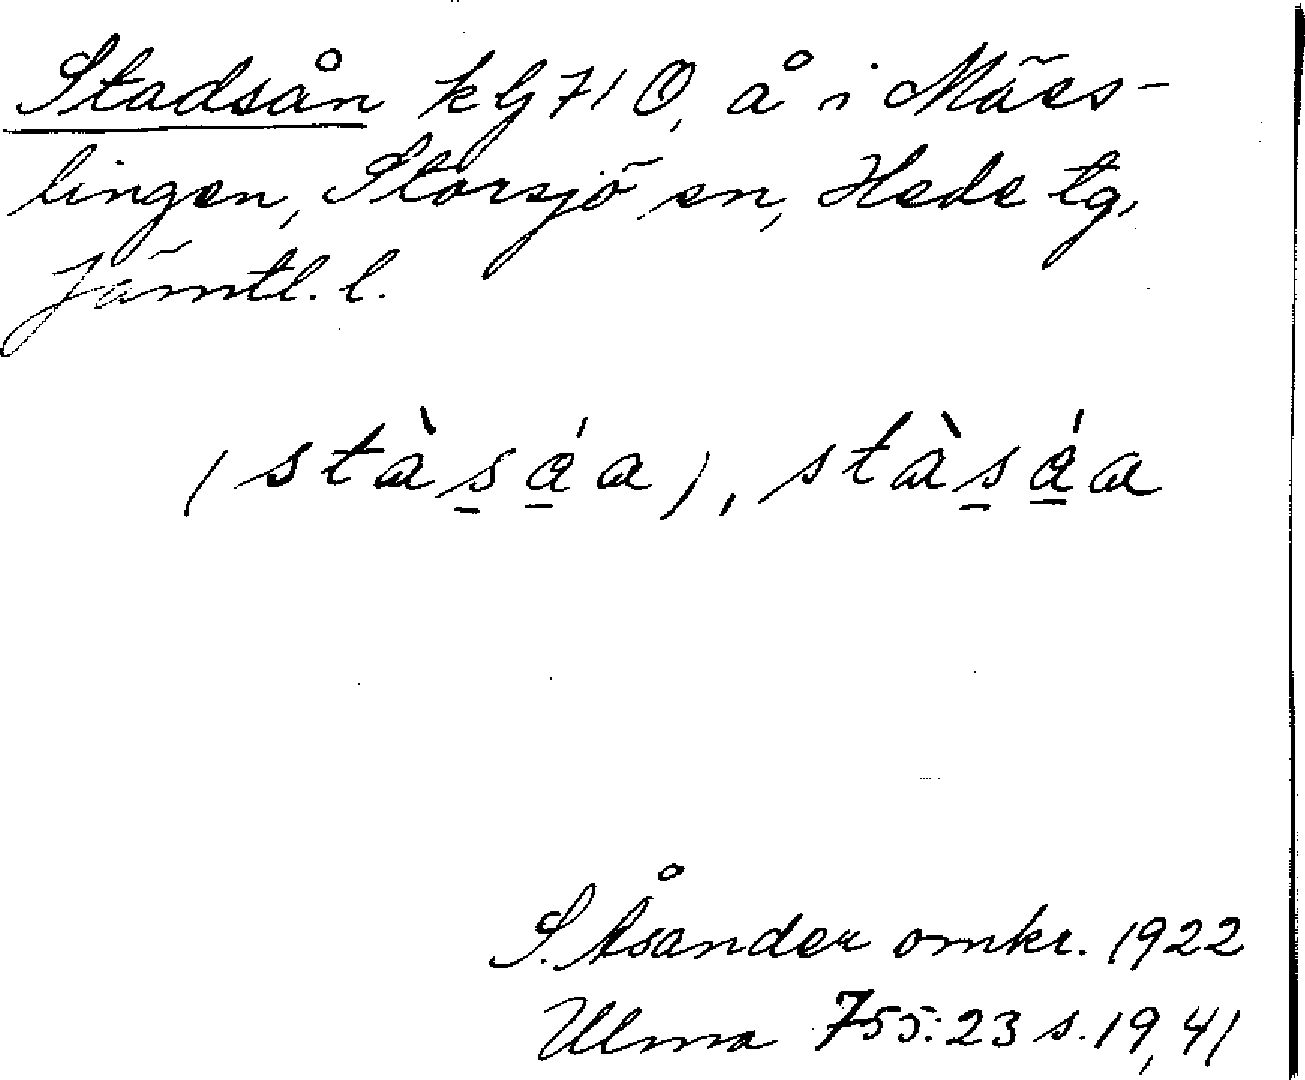 Stadsån kbj 71 O, å i Mäss-
lingen, Storsjö sn, Hede tg,
Jämtl. l.
(stàsáa), stàsáa
S. Åsander omkr. 1922
Ulma 755:23 s. 19, 41